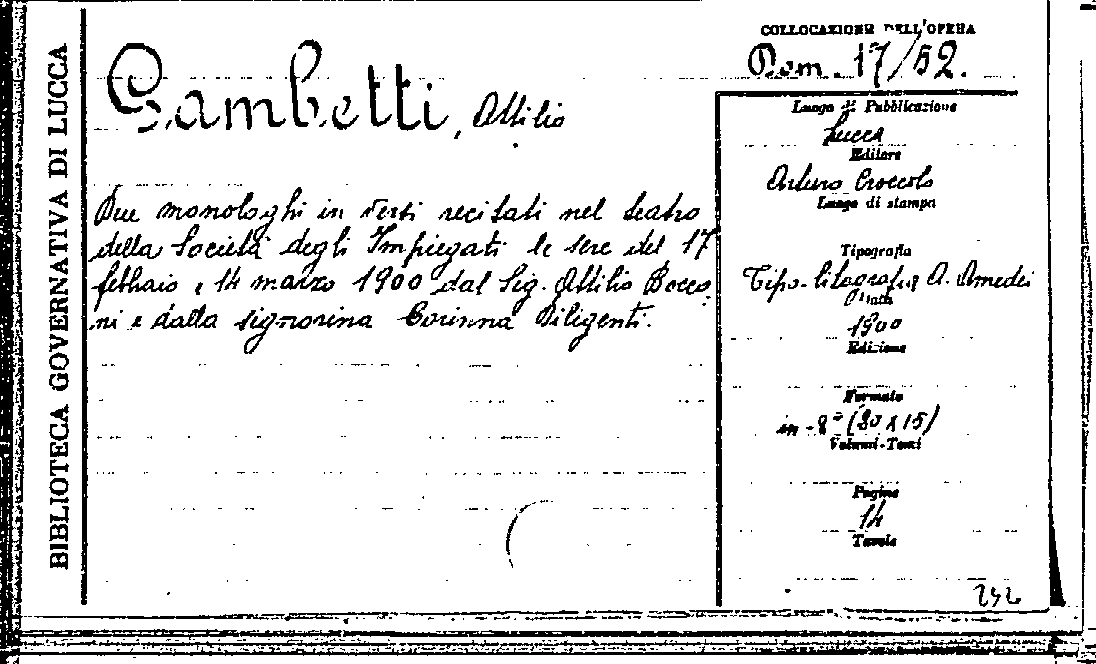 BIBLIOTECA GOVERNATIVA DI LUCCA
COLLOCAZIONE DELL'OPERA
Dom. 17/52.
Gambetti, Attilio
Due monologhi in versi recitati nel teatro
della Società degli Impiegati le sere del 17
febbraio e 14 marzo 1900 dal Sig. Attilio Bocco
ni e dalla signorina Corinna Diligenti.
Luogo di Pubblicazione
Lucca
Editore
Arturo Croccolo
Luogo di stampa
Tipografia
Tipo-litografia A. Amedei
Data
1900
Edizione
Formato
in-8° (20x15)
Volumi-Tomi
Pagine
14
Tavole
242